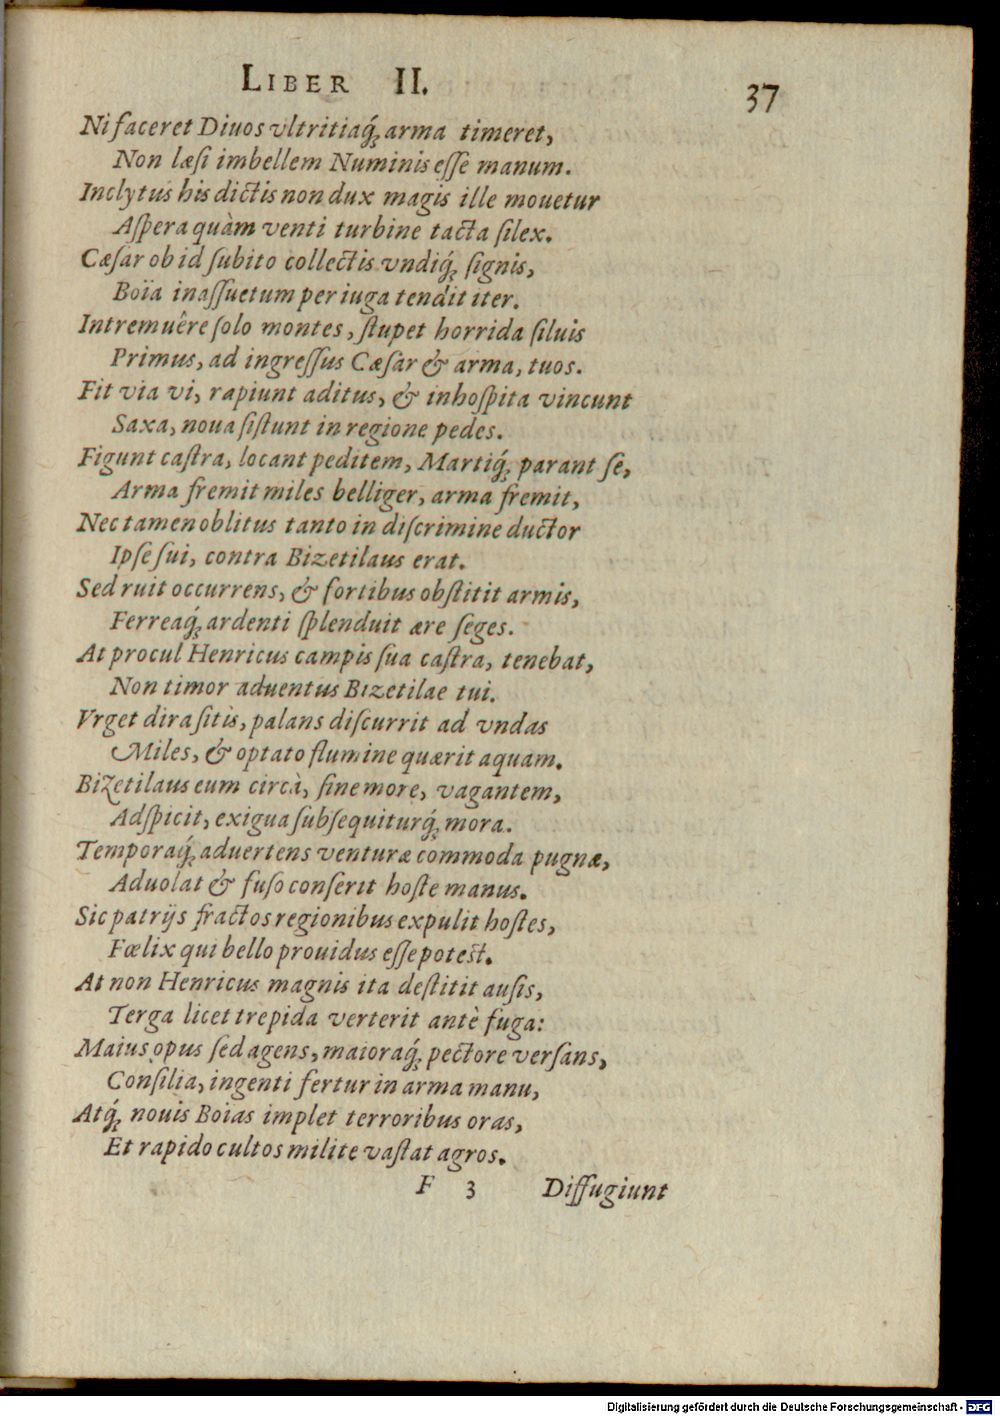 LIBER II. 37
Ni faceret Diuos vltritiaq́; arma timeret,
Non læsi imbellem Numinis esse manum.
Inclytus his dictis non dux magis ille mouetur
Aspera quàm venti turbine tacta silex.
Cæsar ob id subito collectis vndiq́; signis,
Boïa inassuetum per iuga tendit iter.
Intremuêre solo montes, stupet horrida siluis
Primus, ad ingressus Cæsar & arma, tuos.
Fit via vi, rapiunt aditus, & inhospita vincunt
Saxa, noua sistunt in regione pedes.
Figunt castra, locant peditem, Martiq́; parant se,
Arma fremit miles belliger, arma fremit,
Nec tamen oblitus tanto in discrimine ductor
Ipse sui, contra Bizetilaus erat.
Sed ruit occurrens, & fortibus obstitit armis,
Ferreaq́; ardenti splenduit ære seges.
At procul Henricus campis sua castra, tenebat,
Non timor aduentus Bizetilae tui.
Vrget dira sitis, palans discurrit ad vndas
Miles, & optato flumine quærit aquam.
Bizetilaus eum circà, sine more, vagantem,
Adspicit, exigua subsequiturq́; mora.
Temporaq́; aduertens venturæ commoda pugnæ,
Aduolat & fuso conserit hoste manus.
Sic patrijs fractos regionibus expulit hostes,
Fœlix qui bello prouidus esse potest.
At non Henricus magnis ita destitit ausis,
Terga licet trepida verterit antè fuga:
Maius opus sed agens, maioraq́; pectore versans,
Consilia, ingenti fertur in arma manu,
Atq́; nouis Boias implet terroribus oras,
Et rapido cultos milite vastat agros.
F 3 Diffugiunt
Digitalisierung gefördert durch die Deutsche Forschungsgemeinschaft - DFG